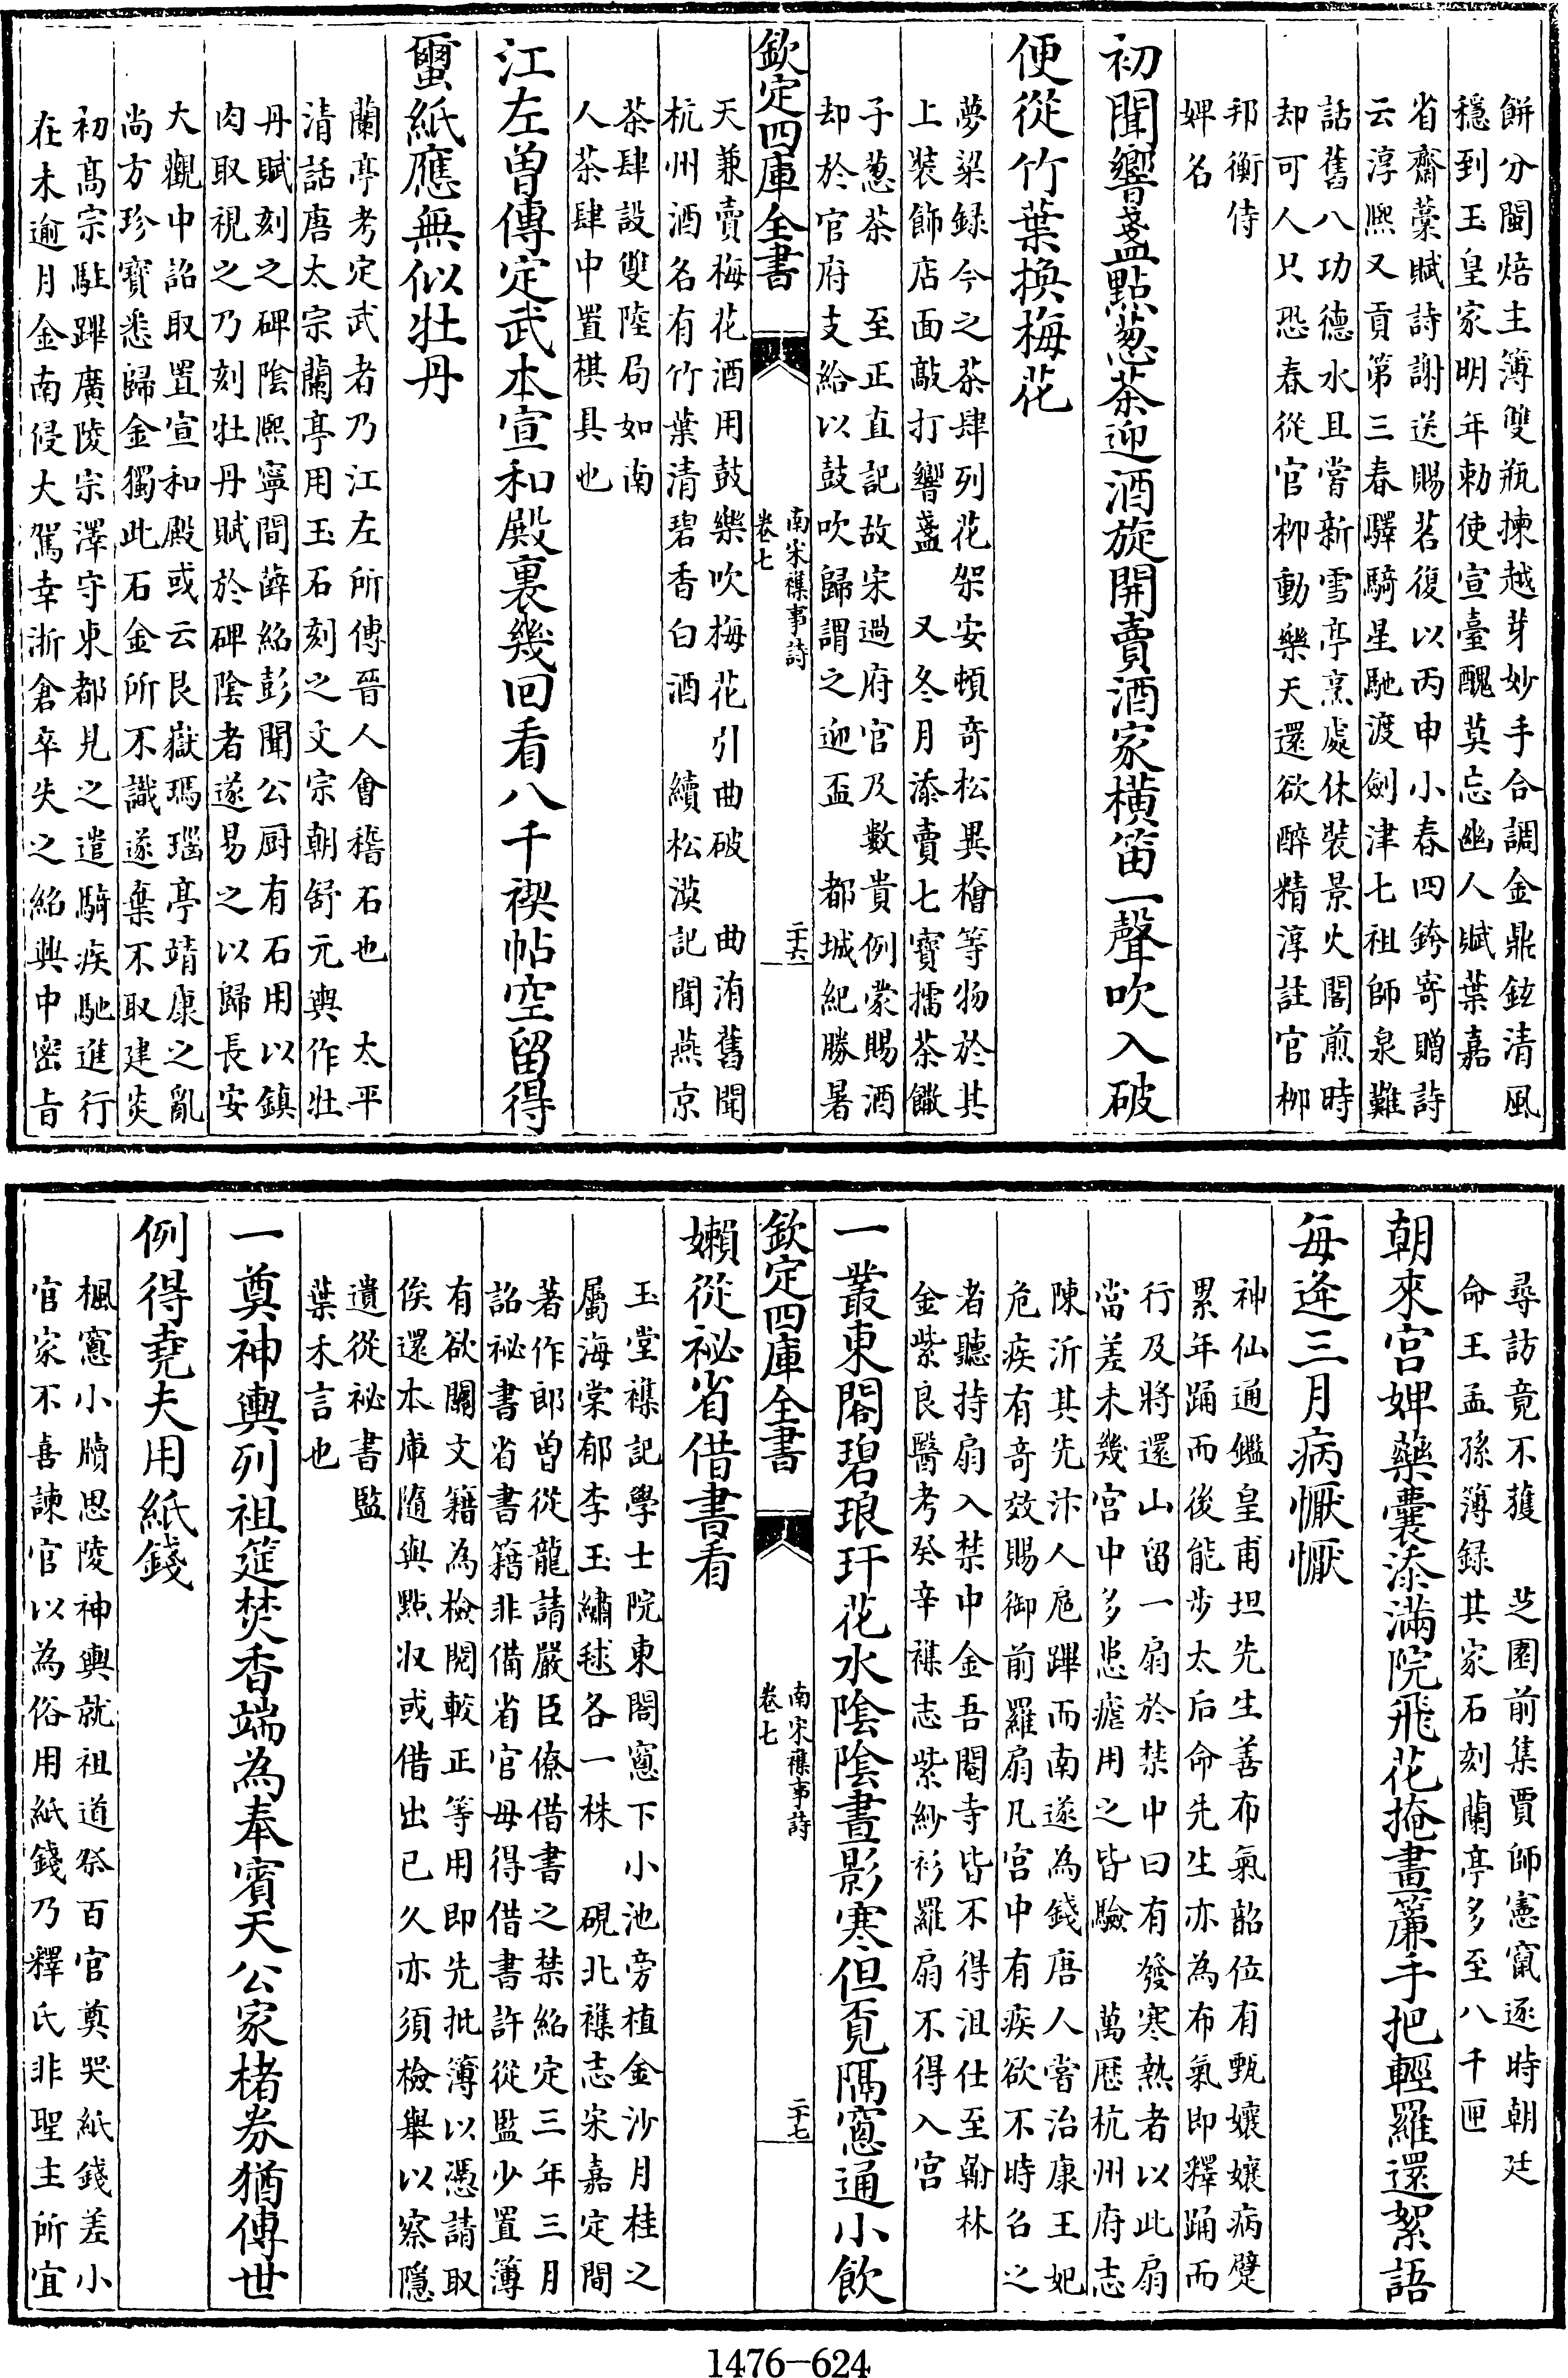 餅分閩焙主簿雙瓶揀越芽妙手合調金鼎鉉清風
穩到玉皇家明年勅使宣臺醜莫忘幽人賦葉嘉
省齋藁賦詩謝送賜茗復以丙申小春四銙寄贈詩
云淳熙又貢第三春驛騎星馳渡劍津七祖師泉難
話舊八功德水且嘗新雪亭烹處休裝景火閣煎時
却可人只恐春從官柳動樂天還欲醉精淳註官柳
邦衡侍
婢名
初聞響盞點蔥茶迎酒旋開賣酒家横笛一聲吹入破
便從竹葉換梅花
夢粱録今之茶肆列花架安頓竒松異檜等物於其
上裝飾店面敲打響盞　又冬月添賣七寶擂茶饊
子葱茶　至正直記故宋過府官及數貴例蒙賜酒
却於官府支給以鼓吹歸謂之迎盃　都城紀勝暑
欽定四庫全書
南宋襍事詩
卷七
二十六
天兼賣梅花酒用鼓樂吹梅花引曲破　曲洧舊聞
杭州酒名有竹葉清碧香白酒　續松漠記聞燕京
茶肆設雙陸局如南
人茶肆中置棋具也
江左曽傳定武本宣和殿裏幾回看八千禊帖空留得
蠒紙應無似牡丹
蘭亭考定武者乃江左所傳晉人會稽石也　太平
清話唐太宗蘭亭用玉石刻之文宗朝舒元輿作牡
丹賦刻之碑陰熙寧間薛紹彭聞公厨有石用以鎮
肉取視之乃刻牡丹賦於碑陰者遂易之以歸長安
大觀中詔取置宣和殿或云艮嶽瑪瑙亭靖康之亂
尚方珍寳悉歸金獨此石金所不識遂棄不取建炎
初髙宗駐蹕廣陵宗澤守東都見之遣騎疾馳進行
在未逾月金南侵大駕幸浙倉卒失之紹興中密旨
尋訪竟不獲　芝園前集賈師憲竄逐時朝廷
命王孟孫簿録其家石刻蘭亭多至八千匣
朝來宮婢藥囊添滿院飛花掩畫簾手把輕羅還絮語
每逄三月病懨懨
神仙通鑑皇甫坦先生善布氣韶位有甄孃孃病躄
累年踊而後能步太后命先生亦為布氣即釋踊而
行及將還山留一扇於禁中曰有發寒熱者以此扇
當差未幾宮中多患瘧用之皆驗　萬厯杭州府志
陳沂其先汴人扈蹕而南遂為錢唐人嘗治康王妃
危疾有奇效賜御前羅扇凡宮中有疾欲不時召之
者聽持扇入禁中金吾閽寺皆不得沮仕至翰林
金紫良醫考癸辛襍志紫紗衫羅扇不得入宫
一叢東閣碧琅玕花水陰陰晝影寒但覔隔窻通小飲
欽定四庫全書
南宋襍事詩
卷七
二十七
嬾從祕省借書看
玉堂襍記學士院東閣窻下小池旁植金沙月桂之
屬海棠郁李玉繡毬各一株　硯北襍志宋嘉定間
著作郎曽從龍請嚴臣僚借書之禁紹定三年三月
詔祕書省書籍非備省官毋得借書許從監少置簿
有欲關文籍為檢閱較正等用即先批簿以憑請取
俟還本庫隨與點收或借出已久亦須檢舉以察隱
遺從祕書監
葉禾言也
一奠神輿列祖筵焚香端為奉賓天公家楮券猶傳世
例得堯夫用紙錢
楓窻小牘思陵神輿就祖道祭百官奠哭紙錢差小
官家不喜諫官以為俗用紙錢乃釋氏非聖主所宜
1476-624